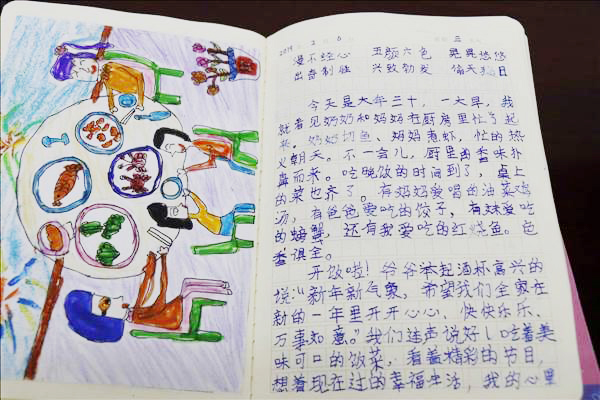 2019 2 6 三
漫不经心 五颜六色 晃晃悠悠
出奇制胜 兴致勃发 偷天换日
今天是大年三十,一大早,我
就看见奶奶和妈妈在厨房里忙了起
来。奶奶切鱼、妈妈煮虾,忙的热
火朝天。不一会儿,厨里香味扑
鼻而来。吃晚饭的时间到了,桌上
的菜也齐了。有妈妈爱喝的油菜鸡
汤,有爸爸爱吃的饺子,有妹爱吃
的螃蟹,还有我爱吃的红烧鱼。色
香俱全。
开饭啦!爷爷举起酒杯高兴的
说:“新年新气象。希望我们全家在
新的一年里开开心心、快快乐乐、
万事如意。”我们连声说好!吃着美
味可口的饭菜,看着精彩的节目,
想着现在过的幸福生活,我的心里